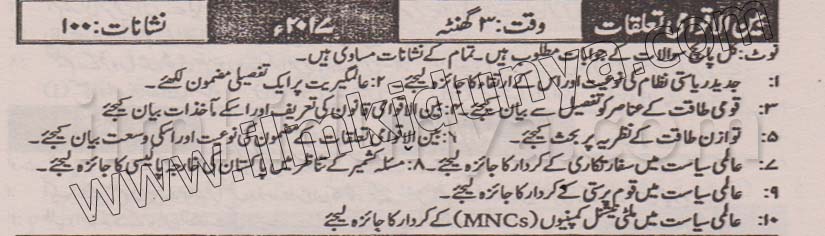 بین الاقوامی تعلقات وقت: ۳ گھنٹہ ۲۰۱۷ء نشانات: ۱۰۰
نوٹ: کل پانچ سوالات کے جوابات مطلوب ہیں۔ تمام کے نشانات مساوی ہیں۔
۱: جدید ریاستی نظام کی نوعیت اور اس کے ارتقاء کا جائزہ لیجئے ۲: عالمگیریت پر ایک تفصیلی مضمون لکھئے۔
۳: قومی طاقت کے عناصر کو تفصیل سے بیان کیجئے ۴: بین الاقوامی قانون کی تعریف اور اسکے مآخذات بیان کیجئے
۵: توازن طاقت کے نظریہ پر بحث کیجئے۔ ۶: بین الاقوامی تعلقات کے مضمون کی نوعیت اور اسکی وسعت بیان کیجئے۔
۷: عالمی سیاست میں سفارتکاری کے کردار کا جائزہ لیجئے۔ ۸: مسئلہ کشمیر کے تناظر میں پاکستان کی خارجہ پالیسی کا جائزہ لیجئے۔
۹: عالمی سیاست میں قوم پرستی کے کردار کا جائزہ لیجئے۔
۱۰: عالمی سیاست میں ملٹی نیشنل کمپنیوں (MNCs) کے کردار کا جائزہ لیجئے